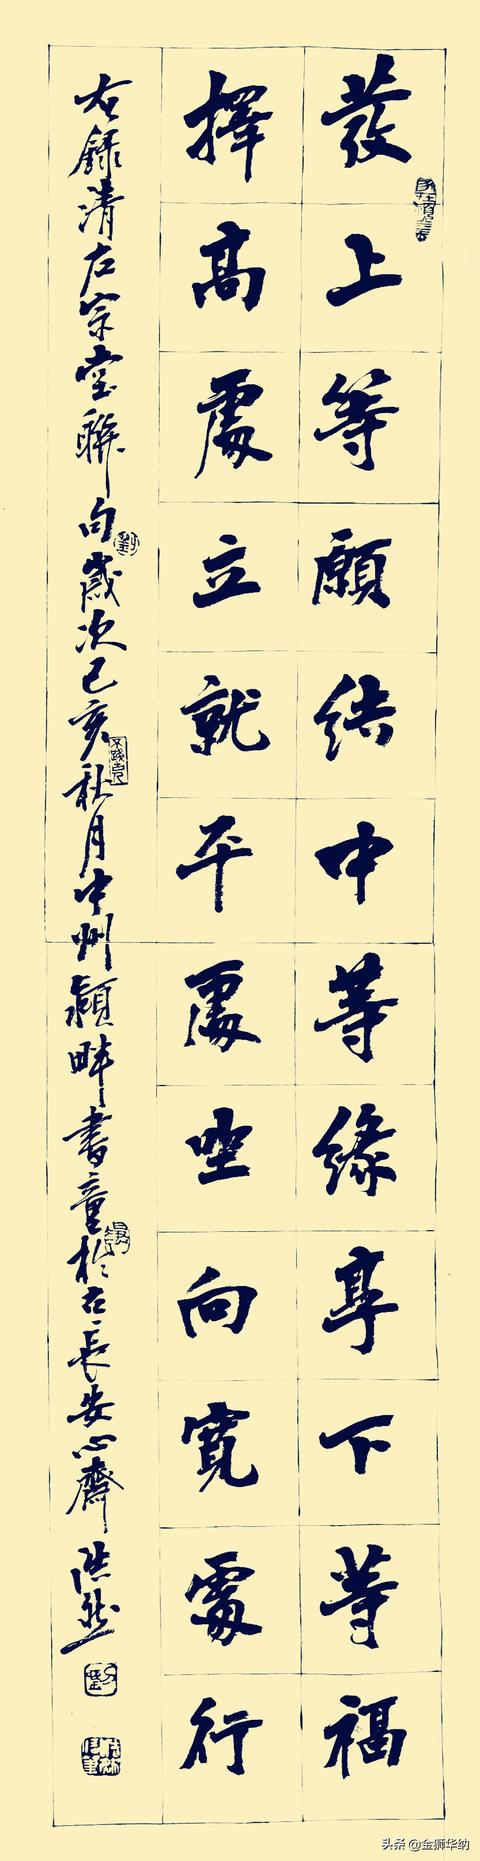 發上等願結中等緣享下等福
擇高處立就平處坐向寬處行
右錄清左宗堂聯句歲次己亥秋月中州潁畔書童於古長安心齋
头条 @金狮华纳